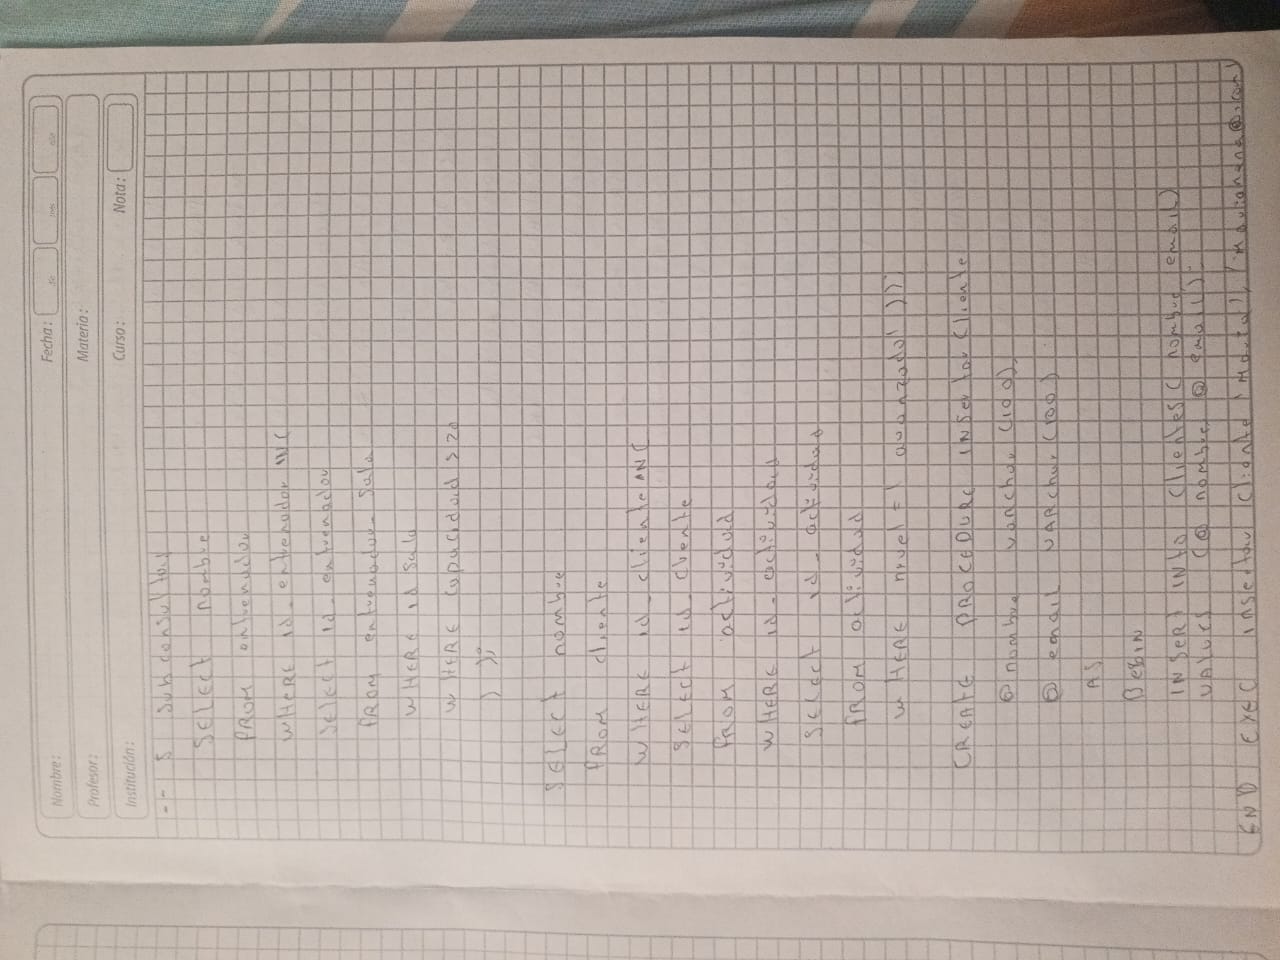 Nombre:
Fecha:
Profesor:
Materia:
Institución:
Curso:
Nota:
-- 5 subconsultas
SELECT nombre
FROM entrenador
WHERE id_entrenador IN (
SELECT id_entrenador
FROM entrenador_sala
WHERE id sala
WHERE capacidad > 20
) );
SELECT nombre
FROM cliente
WHERE id_cliente IN (
SELECT id_cliente
FROM actividad
WHERE id_actividad
SELECT id_actividad
FROM actividad
WHERE nivel = ' avanzado' )));
CREATE PROCEDURE INSertar Cliente
@ nombre varchar (100),
@ email VARchar (100)
AS
BeGIN
INSERT INTO Clientes ( nombre, email)
VALUES (@ nombre, @ email);
END EXEC insertar Cliente 'Maria',